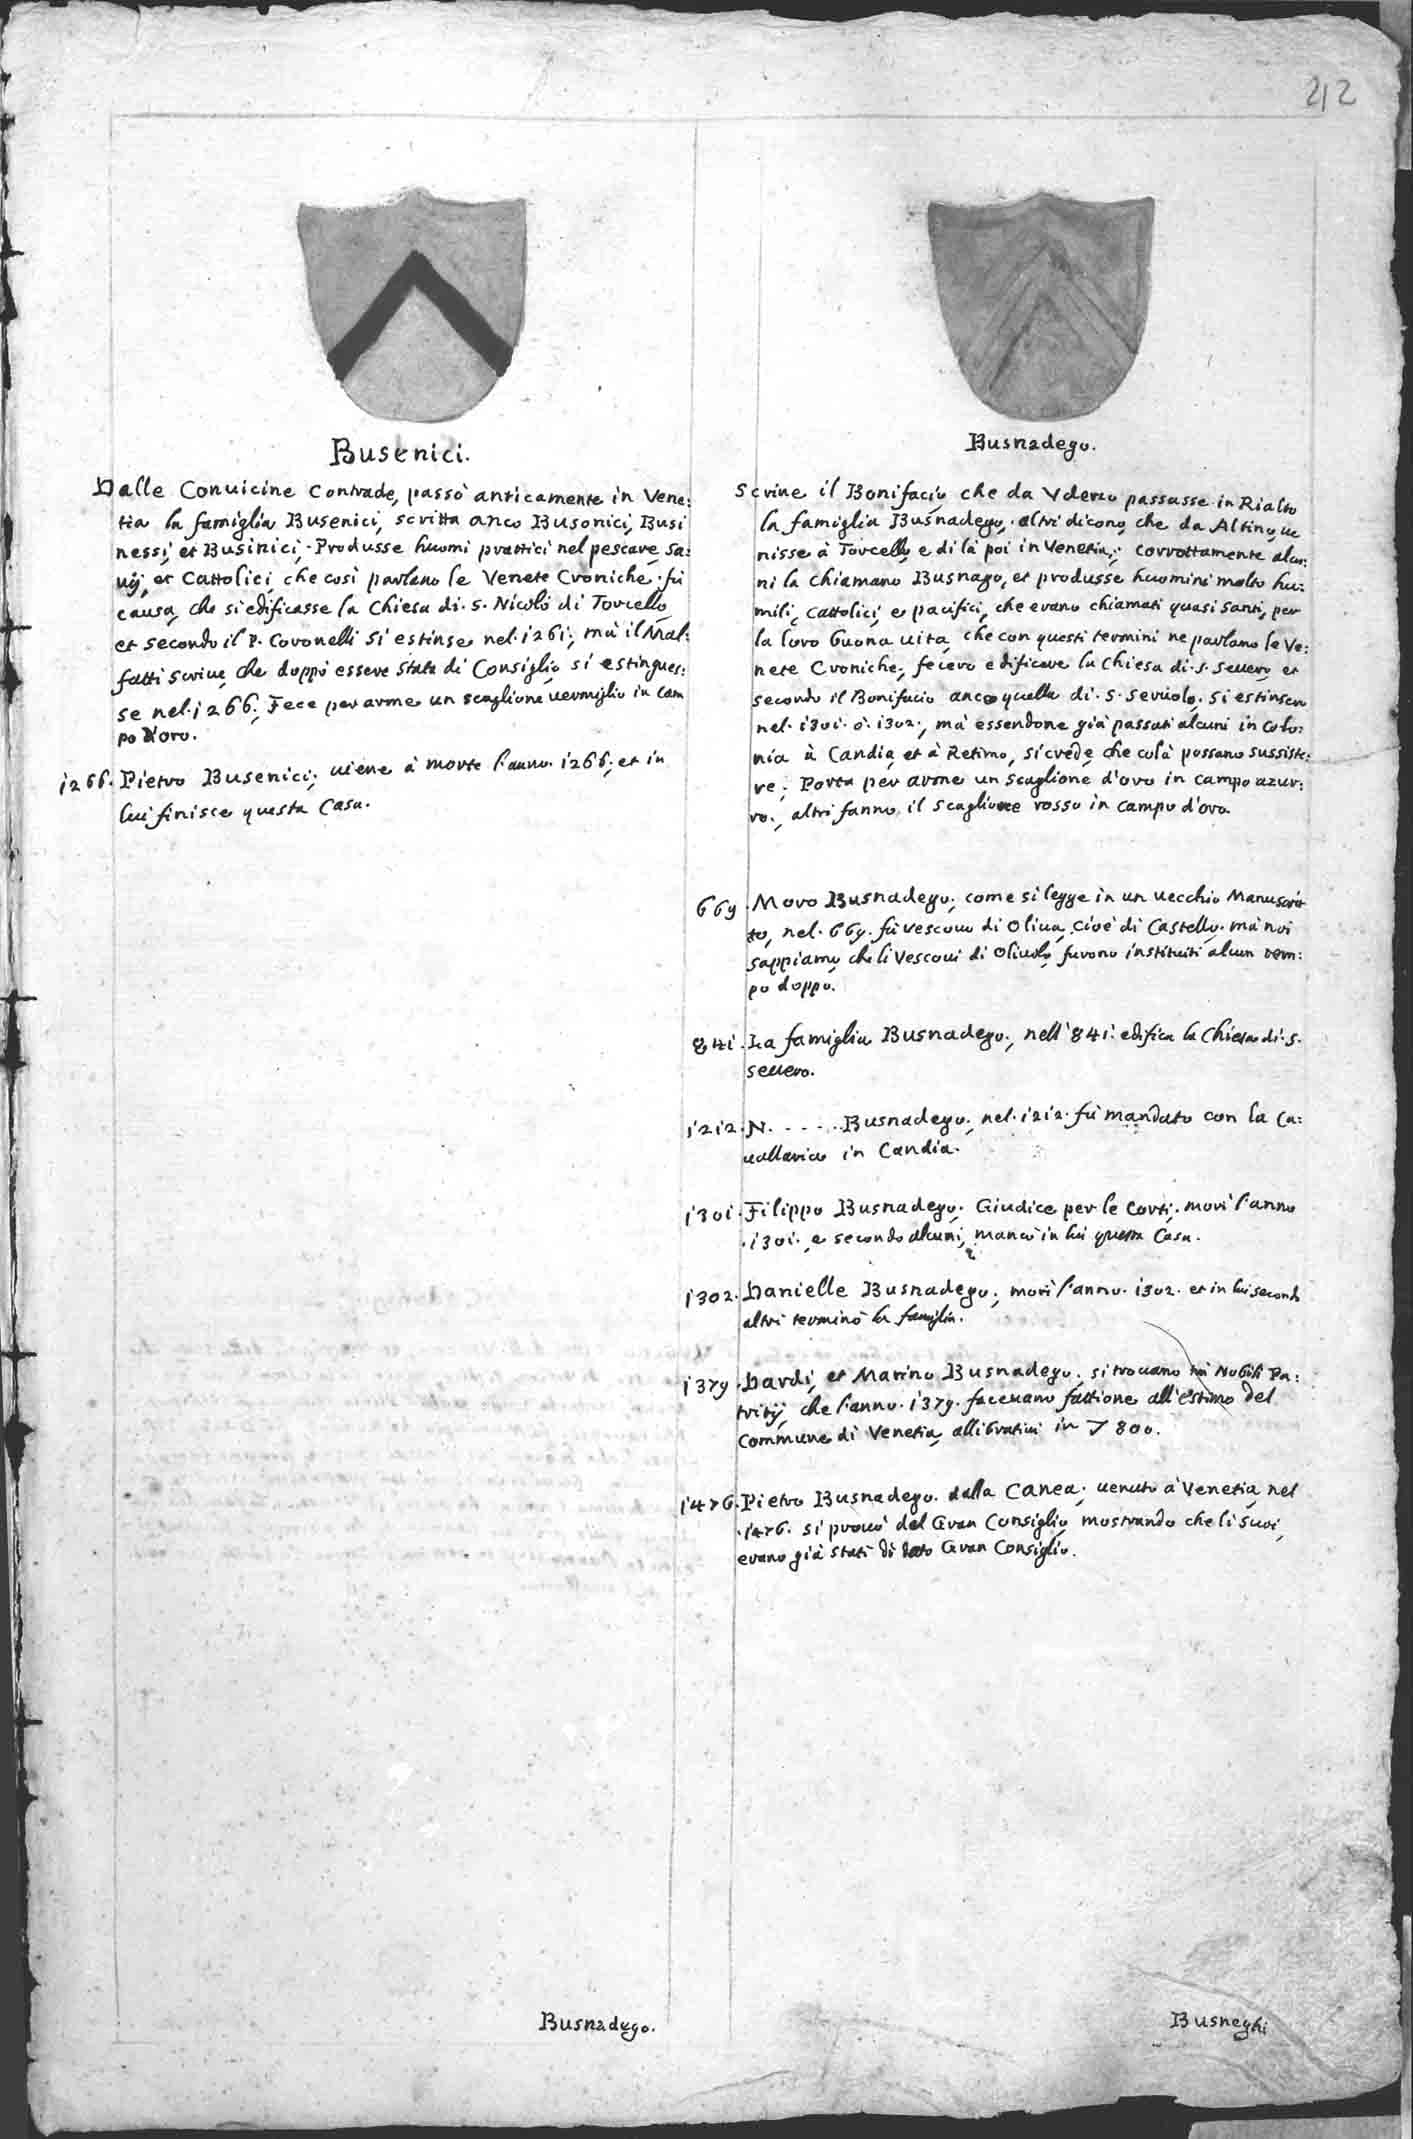 212
Busenici.
Dalle Conuicine Contrade, passò anticamente in Vene:
tia la famiglia Busenici, scritta anco Busonici, Busi
nessi, et Businici, Produsse huomi prattici nel pescare, sa:
uij, et Cattolici, che così parlano le Venete Croniche. fù
causa, che si edificasse la Chiesa di. S. Nicolò di Torcello,
et secondo il P. Coronelli si estinse nel. 1261; mà il Mal:
fatti scriue, che doppò essere stata di Consiglio, si estingues:
se nel. 1266; Fece per arme un scaglione uermiglio in cam
po d'oro.
1266. Pietro Busenici; uiene à morte l'anno. 1266; et in
lui finisce questa Casa.
Busnadego.
Busnadego.
Scriue il Bonifacio, che da Vderzo passasse in Rialto
la famiglia Busnadego, altri dicono, che da Altino, ue
nisse à Torcello, e di là poi in Venetia; corrottamente alcu:
ni la chiamano Busnago, et produsse huomini molto hu:
mili, Cattolici, e pacifici, che erano chiamati quasi santi, per
la loro buona uita, che con questi termini ne parlano le Ve:
nete Croniche; fecero edificare la Chiesa di. S. Seuero, et
secondo il Bonifacio anco quella di. S. Seruolo. si estinsero
nel. 1301. ò. 1302., mà essendone già passati alcuni in Colo:
nia à Candia, et à Retimo, si crede, che colà possano sussiste:
re; Porta per arme un scaglione d'oro in campo azur:
ro., altri fanno il scaglione rosso in campo d'oro.
669. Moro Busnadego; come si legge in un uecchio Manuscrit
to, nel. 669. fù Vescouo di Oliua, cioè di Castello. mà noi
sappiamo, che li Vescoui di Oliuolo, furono instituiti alcun tem:
po doppo.
841. La famiglia Busnadego, nell' 841. edifica la Chiesa di. S.
Seuero.
1212. N. - - - .. Busnadego, nel. 1212. fù mandato con la Ca:
uallaria in Candia.
1301. Filippo Busnadego. Giudice per le Corti, morì l'anno
. 1301. e secondo alcuni, mancò in lui questa Casa.
1302. Danielle Busnadego, morì l'anno. 1302. et in lui secondo
altri terminò la famiglia.
1379. Dardi, et Marino Busnadego, si trouano trà Nobili Pa:
tritij, che l'anno. 1379. faceuano fattione all'estimo del
Commune di Venetia, allibratiui in 800.
1476. Pietro Busnadego. dalla Canea; uenuto à Venetia, nel
. 1476. si prouò del Gran Consiglio, mostrando che li suoi,
erano già stati di detto Gran Consiglio.
Busneghi